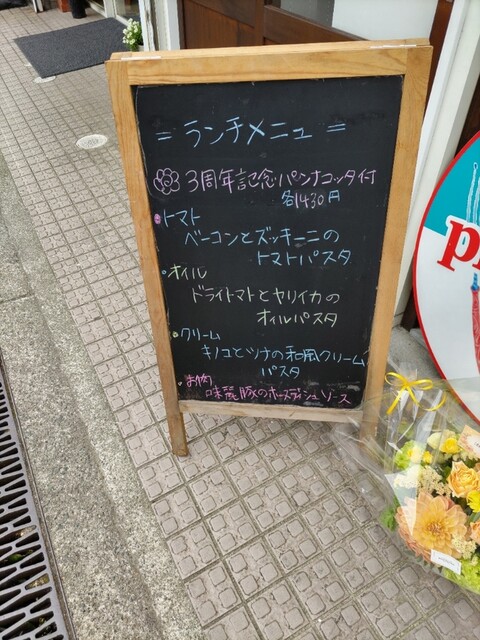 = ランチメニュー =
3周年記念パンナコッタ付
各1430円
・トマト
ベーコンとズッキーニの
トマトパスタ
・オイル
ドライトマトとヤリイカの
オイルパスタ
・クリーム
キノコとツナの和風クリーム
パスタ
・お肉
味麗豚のホースラディシュソース